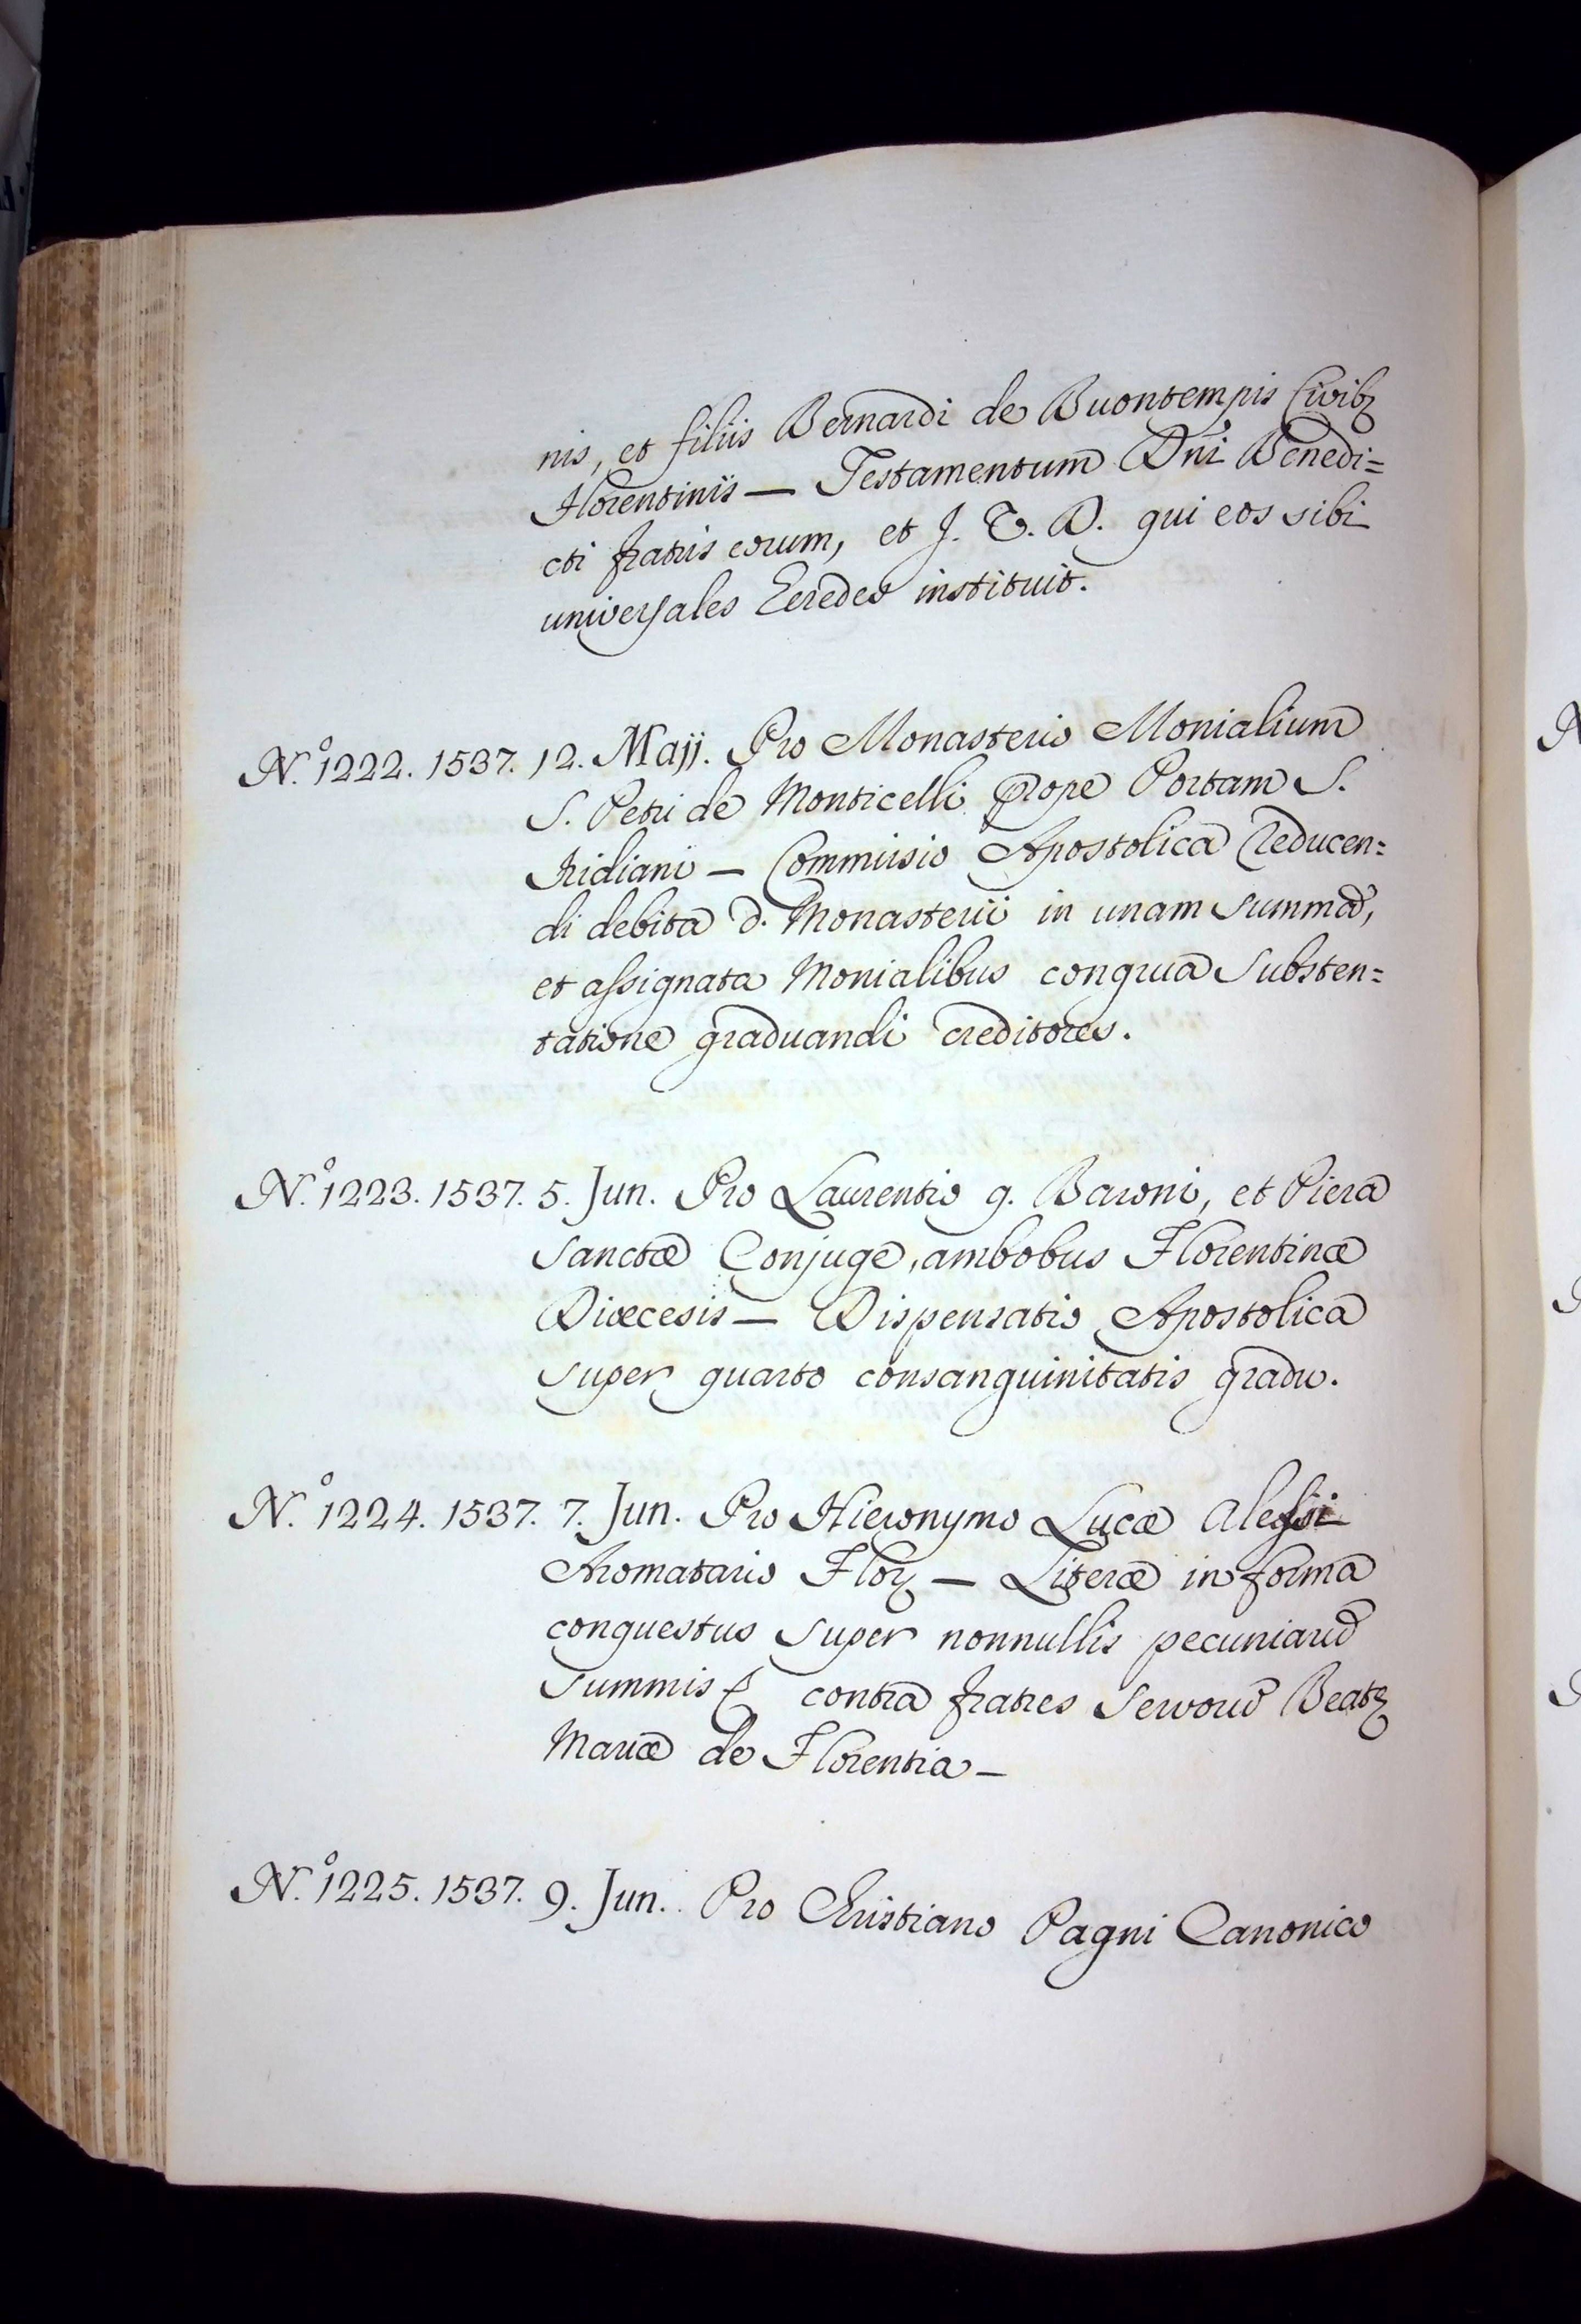 nis, et filiis Bernardi de Buontempis Civibꝫ
Florentinis — Testamentum Dñi Benedi=
cti fratris eorum, et J. V. D. qui eos sibi
universales Eeredes instituit.
N.º 1222. 1537. 12. Majj. Pro Monasterio Monialium
S. Petri de Monticelli prope Portam S.
Fridiani — Commissio Apostolica reducen=
di debita d. Monasterii in unam summã,
et assignata Monialibus congrua substen=
tatione graduandi creditores.
N.º 1223. 1537. 5. Jun. Pro Laurentio q. Baroni, et Piera
Sanctæ Conjuge, ambobus Florentinæ
Diœcesis — Dispensatio Apostolica
super quarto consanguinitatis gradu.
N.º 1224. 1537. 7. Jun. Pro Hieronymo Lucæ Alessi
Aromatario Florꝫ — Literæ in forma
conquestus super nonnullis pecuniarũ
summis contra fratres Servorũ Beatꝫ
Mariæ de Florentia —
N.º 1225. 1537. 9. Jun. Pro Christiano Pagni Canonico